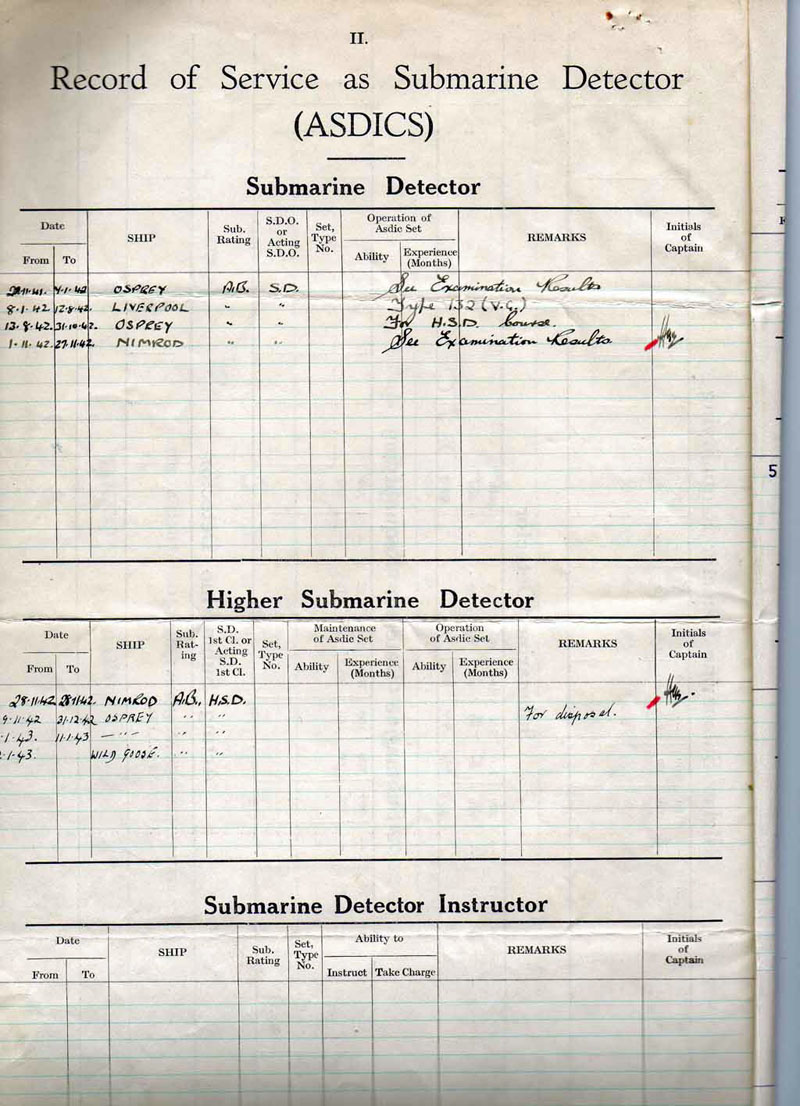 II.
Record of Service as Submarine Detector
(ASDICS)
Submarine Detector
Date From To SHIP Sub. Rating S.D.O. or Acting S.D.O. Set, Type No. Operation of Asdic Set Ability Experience (Months) REMARKS Initials of Captain
OSPREY A.B. S.D. See Examination Results
8.1.42. 12.8.42. LIVERPOOL " " Type 132 (V.C.)
13.8.42. 31.10.42. OSPREY " " For H.S.D. Course.
1.11.42. 27.11.42. NIMROD " " See Examination Results
5
Higher Submarine Detector
Date From To SHIP Sub. Rat- ing S.D. 1st Cl. or Acting S.D. 1st Cl. Set, Type No. Maintenance of Asdic Set Ability Experience (Months) Operation of Asdic Set Ability Experience (Months) REMARKS Initials of Captain
28.11.42. 28.11.42. NIMROD A.B. H.S.D.
9.11.42 31.12.42 OSPREY " " For disposal.
.1.43. 11.1.43 — " — " "
.1.43. WILD GOOSE. " "
Submarine Detector Instructor
Date From To SHIP Sub. Rating Set, Type No. Ability to Instruct Take Charge REMARKS Initials of Captain